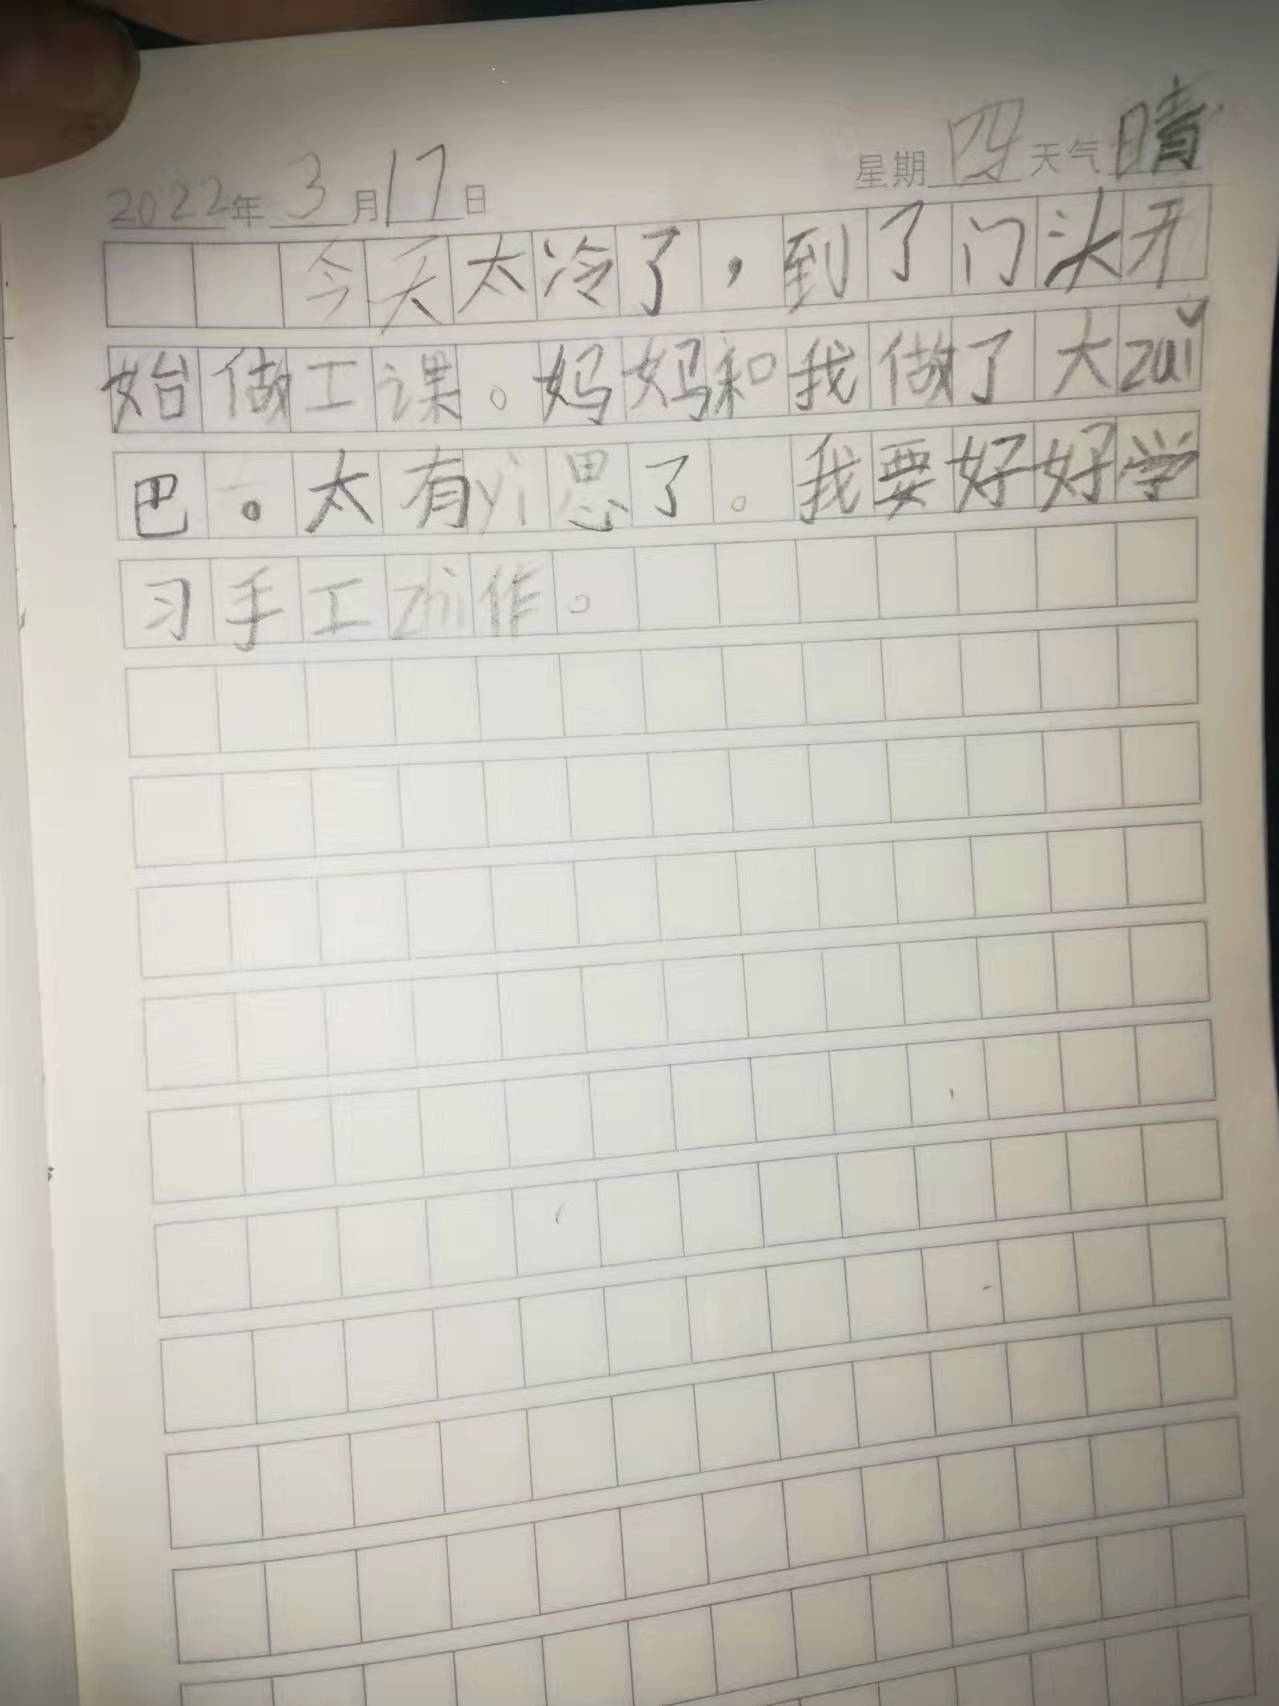 2022年3月17日 星期四天气晴
今天太冷了，到了门头开
始做工课。妈妈和我做了大zuǐ
巴。太有yì思了。我要好好学
习手工zhì作。